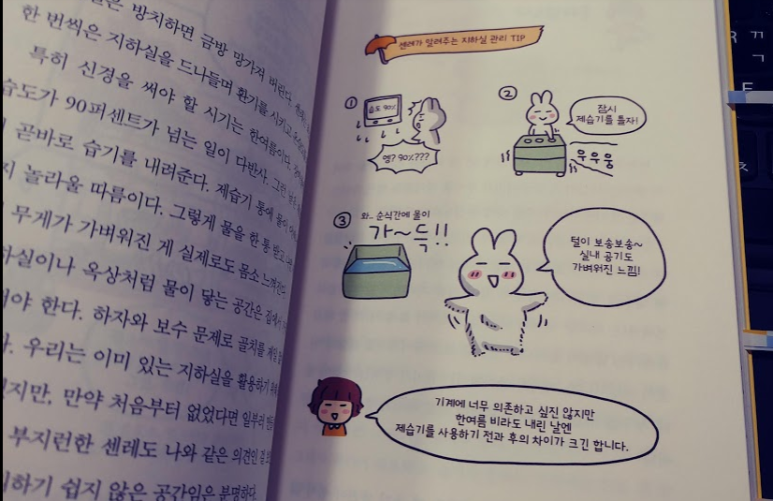 은 방치하면 금방 망가져 버린다.
한 번씩은 지하실을 드나들며 환기를 시키고
특히 신경을 써야 할 시기는 한여름이다.
습도가 90퍼센트가 넘는 일이 다반사.
곧바로 습기를 내려준다. 제습기 통에 물이
놀라울 따름이다. 그렇게 물을 한 통 받고
무게가 가벼워진 게 실제로도 몸소 느껴진다
하실이나 옥상처럼 물이 닿는 공간은
야 한다. 하자와 보수 문제로 골치를
우리는 이미 있는 지하실을 활용하기
지만, 만약 처음부터 없었다면 일부러
부지런한 센레도 나와 같은 의견인
하기 쉽지 않은 공간임은 분명하다.
센레가 알려주는 지하실 관리 TIP
①
습도 90%
엥? 90%???
②
잠시
제습기를 틀자!
우우웅
③
와.. 순식간에 물이
가~득!!
털이 보송보송~
실내 공기도
가벼워진 느낌!
기계에 너무 의존하고 싶진 않지만
한여름 비라도 내린 날엔
제습기를 사용하기 전과 후의 차이가 크긴 합니다.